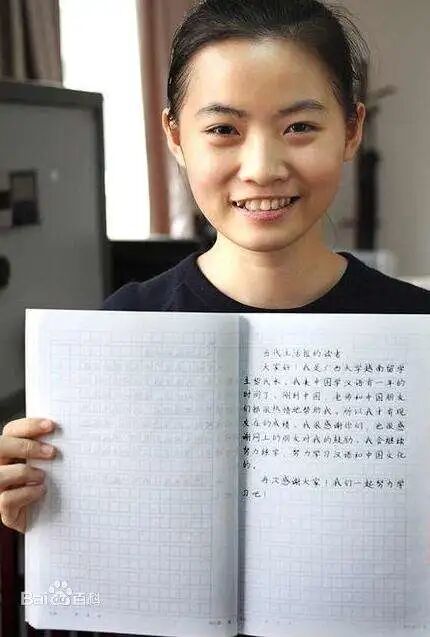 当代生活报的读者
大家好！我是广西大学越南留学
生黎氏水，我来中国学汉语有一年的
时间了，刚到中国，老师和中国朋友
们都很热情地帮助我，所以我才有现
在的成绩，我很感谢你们，也很感
谢网上的朋友对我的鼓励，我会继续
努力练字，努力学习汉语和中国文化
的。
再次感谢大家！我们一起努力学
习吧！
Baidu百科